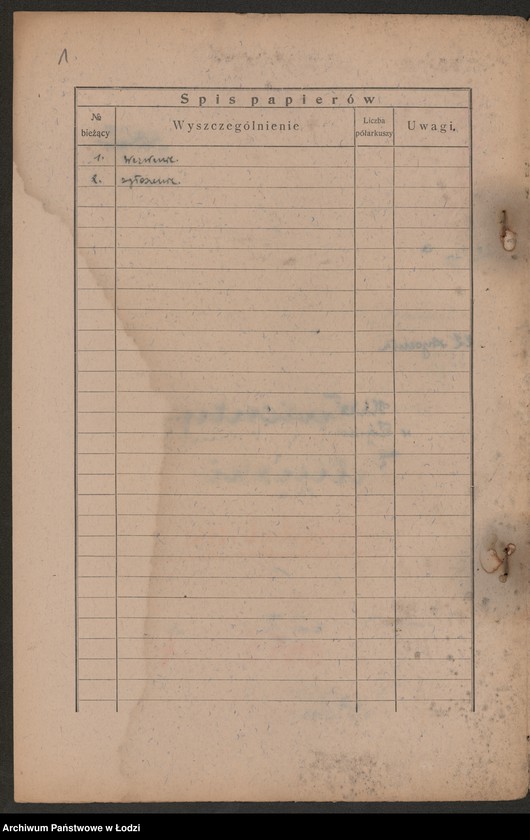 1
Spis papierów
№ bieżący
Wyszczególnienie
Liczba półarkuszy
Uwagi
1. wezwanie
2. zgłoszenie
Archiwum Państwowe w Łodzi